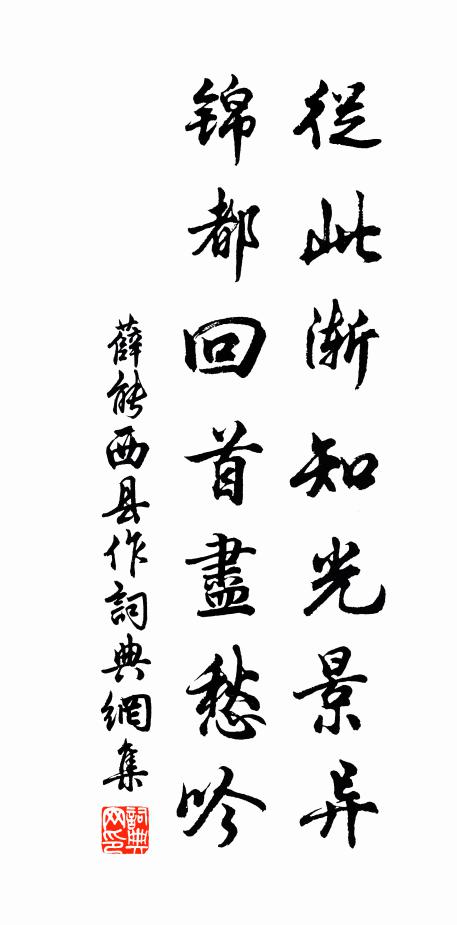 從此渐知光景异
锦都回首盡愁吟
薛能西县作詞典網集
詞典网印